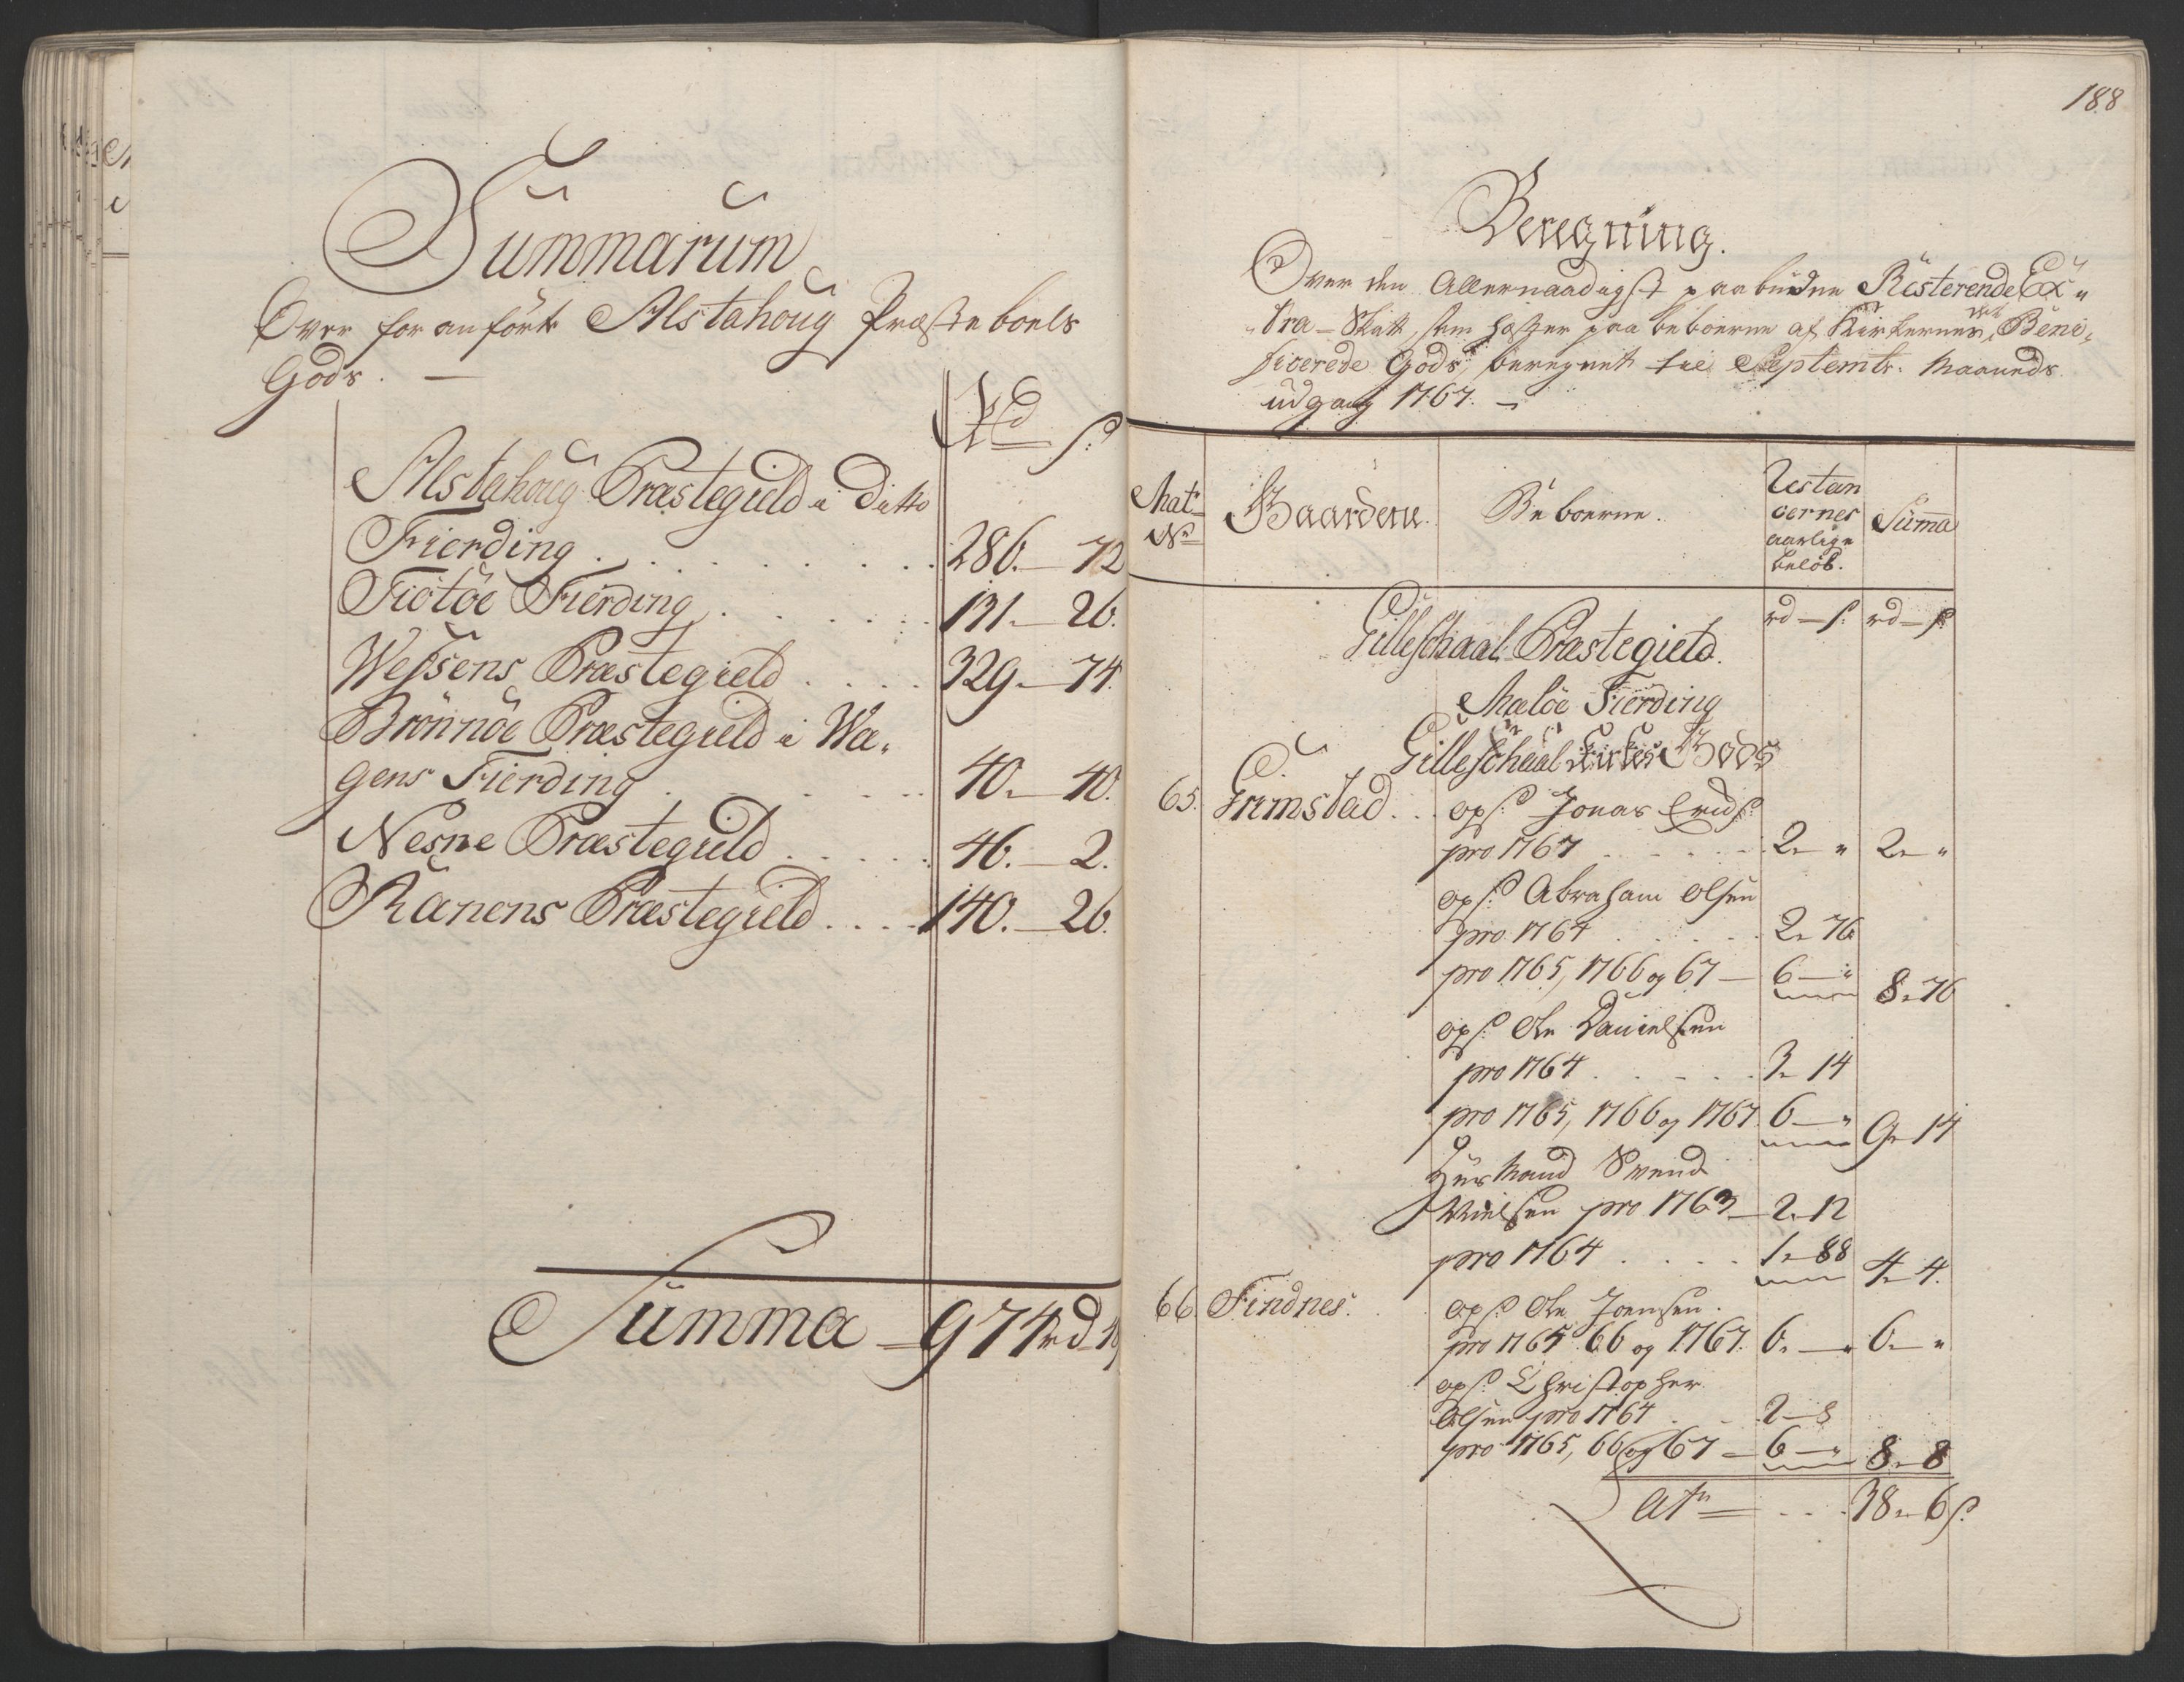 Summarum
Over foranførte Alstahoug Præsteboels
Gods. —
Rd ſ:
Alstahoug Præstegield i Ditto
Fierding . . . . . 286. — 72
Tiötöe Fierding . . . . . 131. — 26.
Wefsens Præstegield . . . . 329. — 74.
Brönnöe Præstegield i Wæ-
gens Fierding . . . . . 40. — 40.
Nesne Præstegield . . . . . 46. — 2.
Ranens Præstegield . . . . 140. — 26.
Summa — 974 rd
188
Beregning.
Over den Allernaadigst paabudne Resterende Ex-
-tra-Skatt, som hafter paa beboerne af Kirkernes Beni-
ficerede Gods, beregnet til Septembr. Maaneds
udgang 1767. —
Mat: No Gaardene. Beboerne. Restan
cernes
aarlige
beløb. Summa
rd — ſ: rd — ſ:
Gilleschaal Præstegield.
Meløe Fierding
Gilleschaal Kirkes Gods
65. opſ: Jonas
pro 1767 . . . . 2 — " 2 — "
opſ: Abraham Olsen
pro 1764 . . . . 2 — 76
pro 1765, 1766 og 67 — 6 — " 8 — 76
opſ: Ole Danielsen
pro 1764 . . . . 3 — 14
pro 1765, 1766 og 1767. 6 — " 9 — 14
Huusmand Svend
Nielsen pro 1763 — 2 — 12
pro 1764 . . . . 1 — 88 4 — 4.
66. Findnes. opſ: Ole Joensen.
pro 1765. 66 og 1767. 6. — " 6. — "
opſ: Christopher
Olsen pro 1764 . . 2 — 8
pro 1765, 66 og 67 — 6 — " 8 — 8
. . . 38 — 6 ſ: